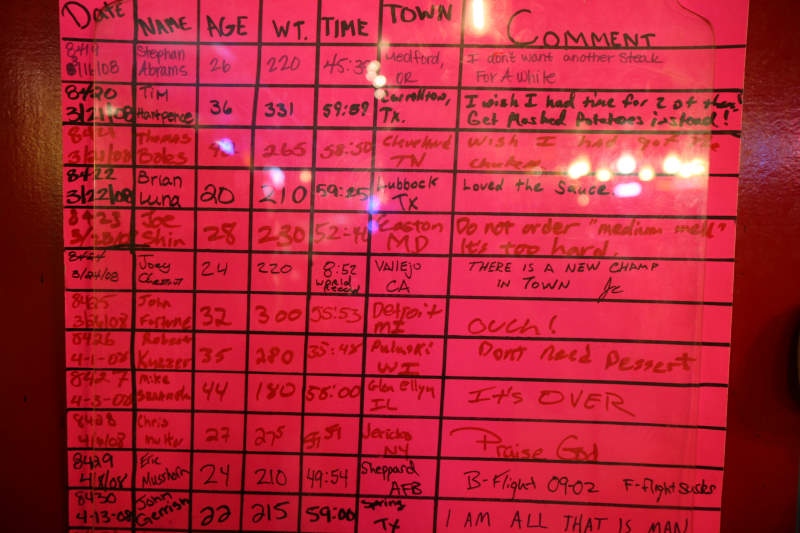 Date NAME AGE WT. TIME TOWN COMMENT
8419 Stephan 26 220 45:3 Medford, I don't want another Steak
3/16/08 Abrams OR For A While
8420 Tim 36 331 59:59 Carrollton, I wish I had time for 2 of them!
3/21/08 Hartpence Tx. Get Mashed Potatoes instead!
Thomas 265 58:50 Cleveland wish I had got the
Boles TN chicken
8422 Brian 20 210 59:25 Lubbock Loved the Sauce.
3/22/08 Luna TX
8423 Joe 28 230 52:4 Easton Do not order "medium well"
Shin MD It's too hard.
Joey 24 220 8:52 VAllejo THERE IS A NEW CHAMP
3/24/08 World Record CA IN TOWN Jc
8425 John 32 300 55:53 Detroit ouch!
3/26/08 Fortune MI
8426 Robert 35 280 35:48 Pulaski Dont Need Dessert
4-1-08 WI
8427 Mike 44 180 58:00 Glen Ellyn It's OVER
4-3-08 IL
8428 Chris 27 275 Jericho Praise God
NY
8429 Eric 24 210 49:54 Sheppard B-Flight 09-02 F-flight Sucks
4/8/08 AFB
8430 John 22 215 59:00 Spring I AM ALL THAT IS MAN
4-13-08 Gerrish Tx